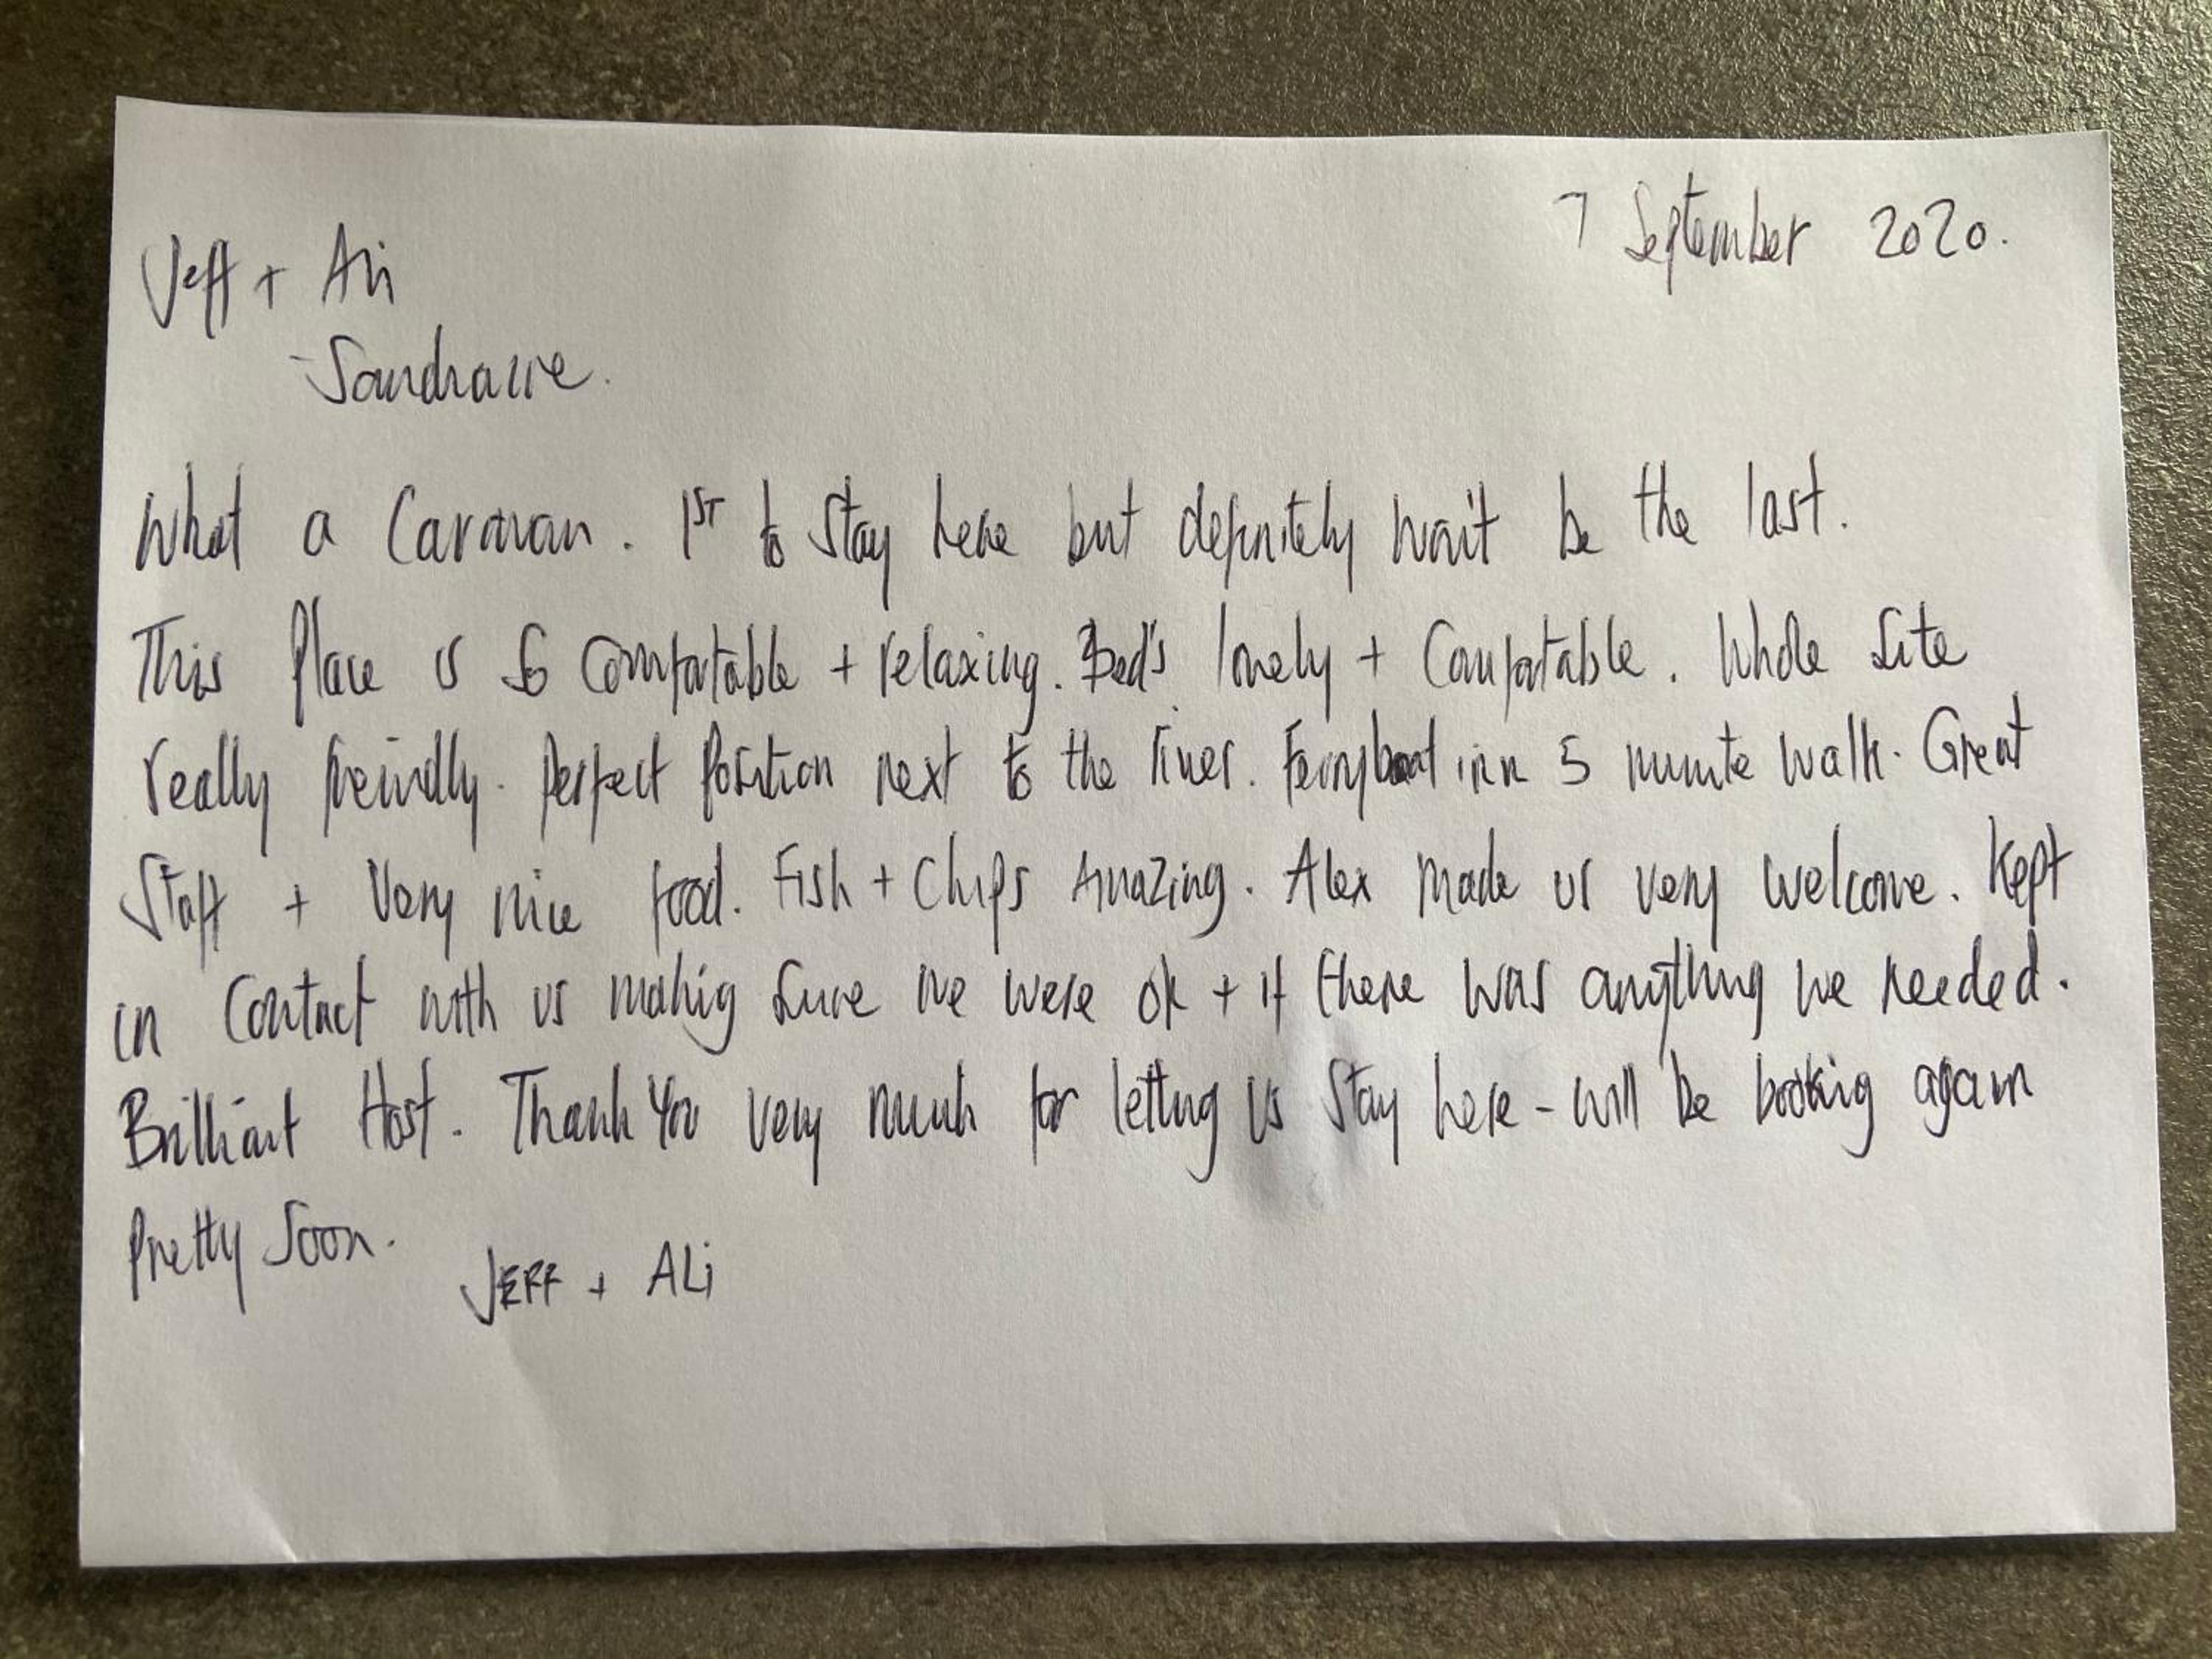 7 September 2020.
Jeff + Ali
What a Caravan. 1ST to stay here but definitely won't be the last.
This Place is so Comfortable + relaxing. Bed's lovely + Comfortable. Whole site
really freindly. Perfect Position next to the river. Ferryboat inn 5 minute walk. Great
Staff + Very nice food. Fish + Chips Amazing. Alex Made us very welcome. Kept
in Contact with us making sure we were ok + if there was anything we needed.
Brilliant Host. Thank You very much for letting us stay here - will be booking again
Pretty Soon.
JEFF + ALi